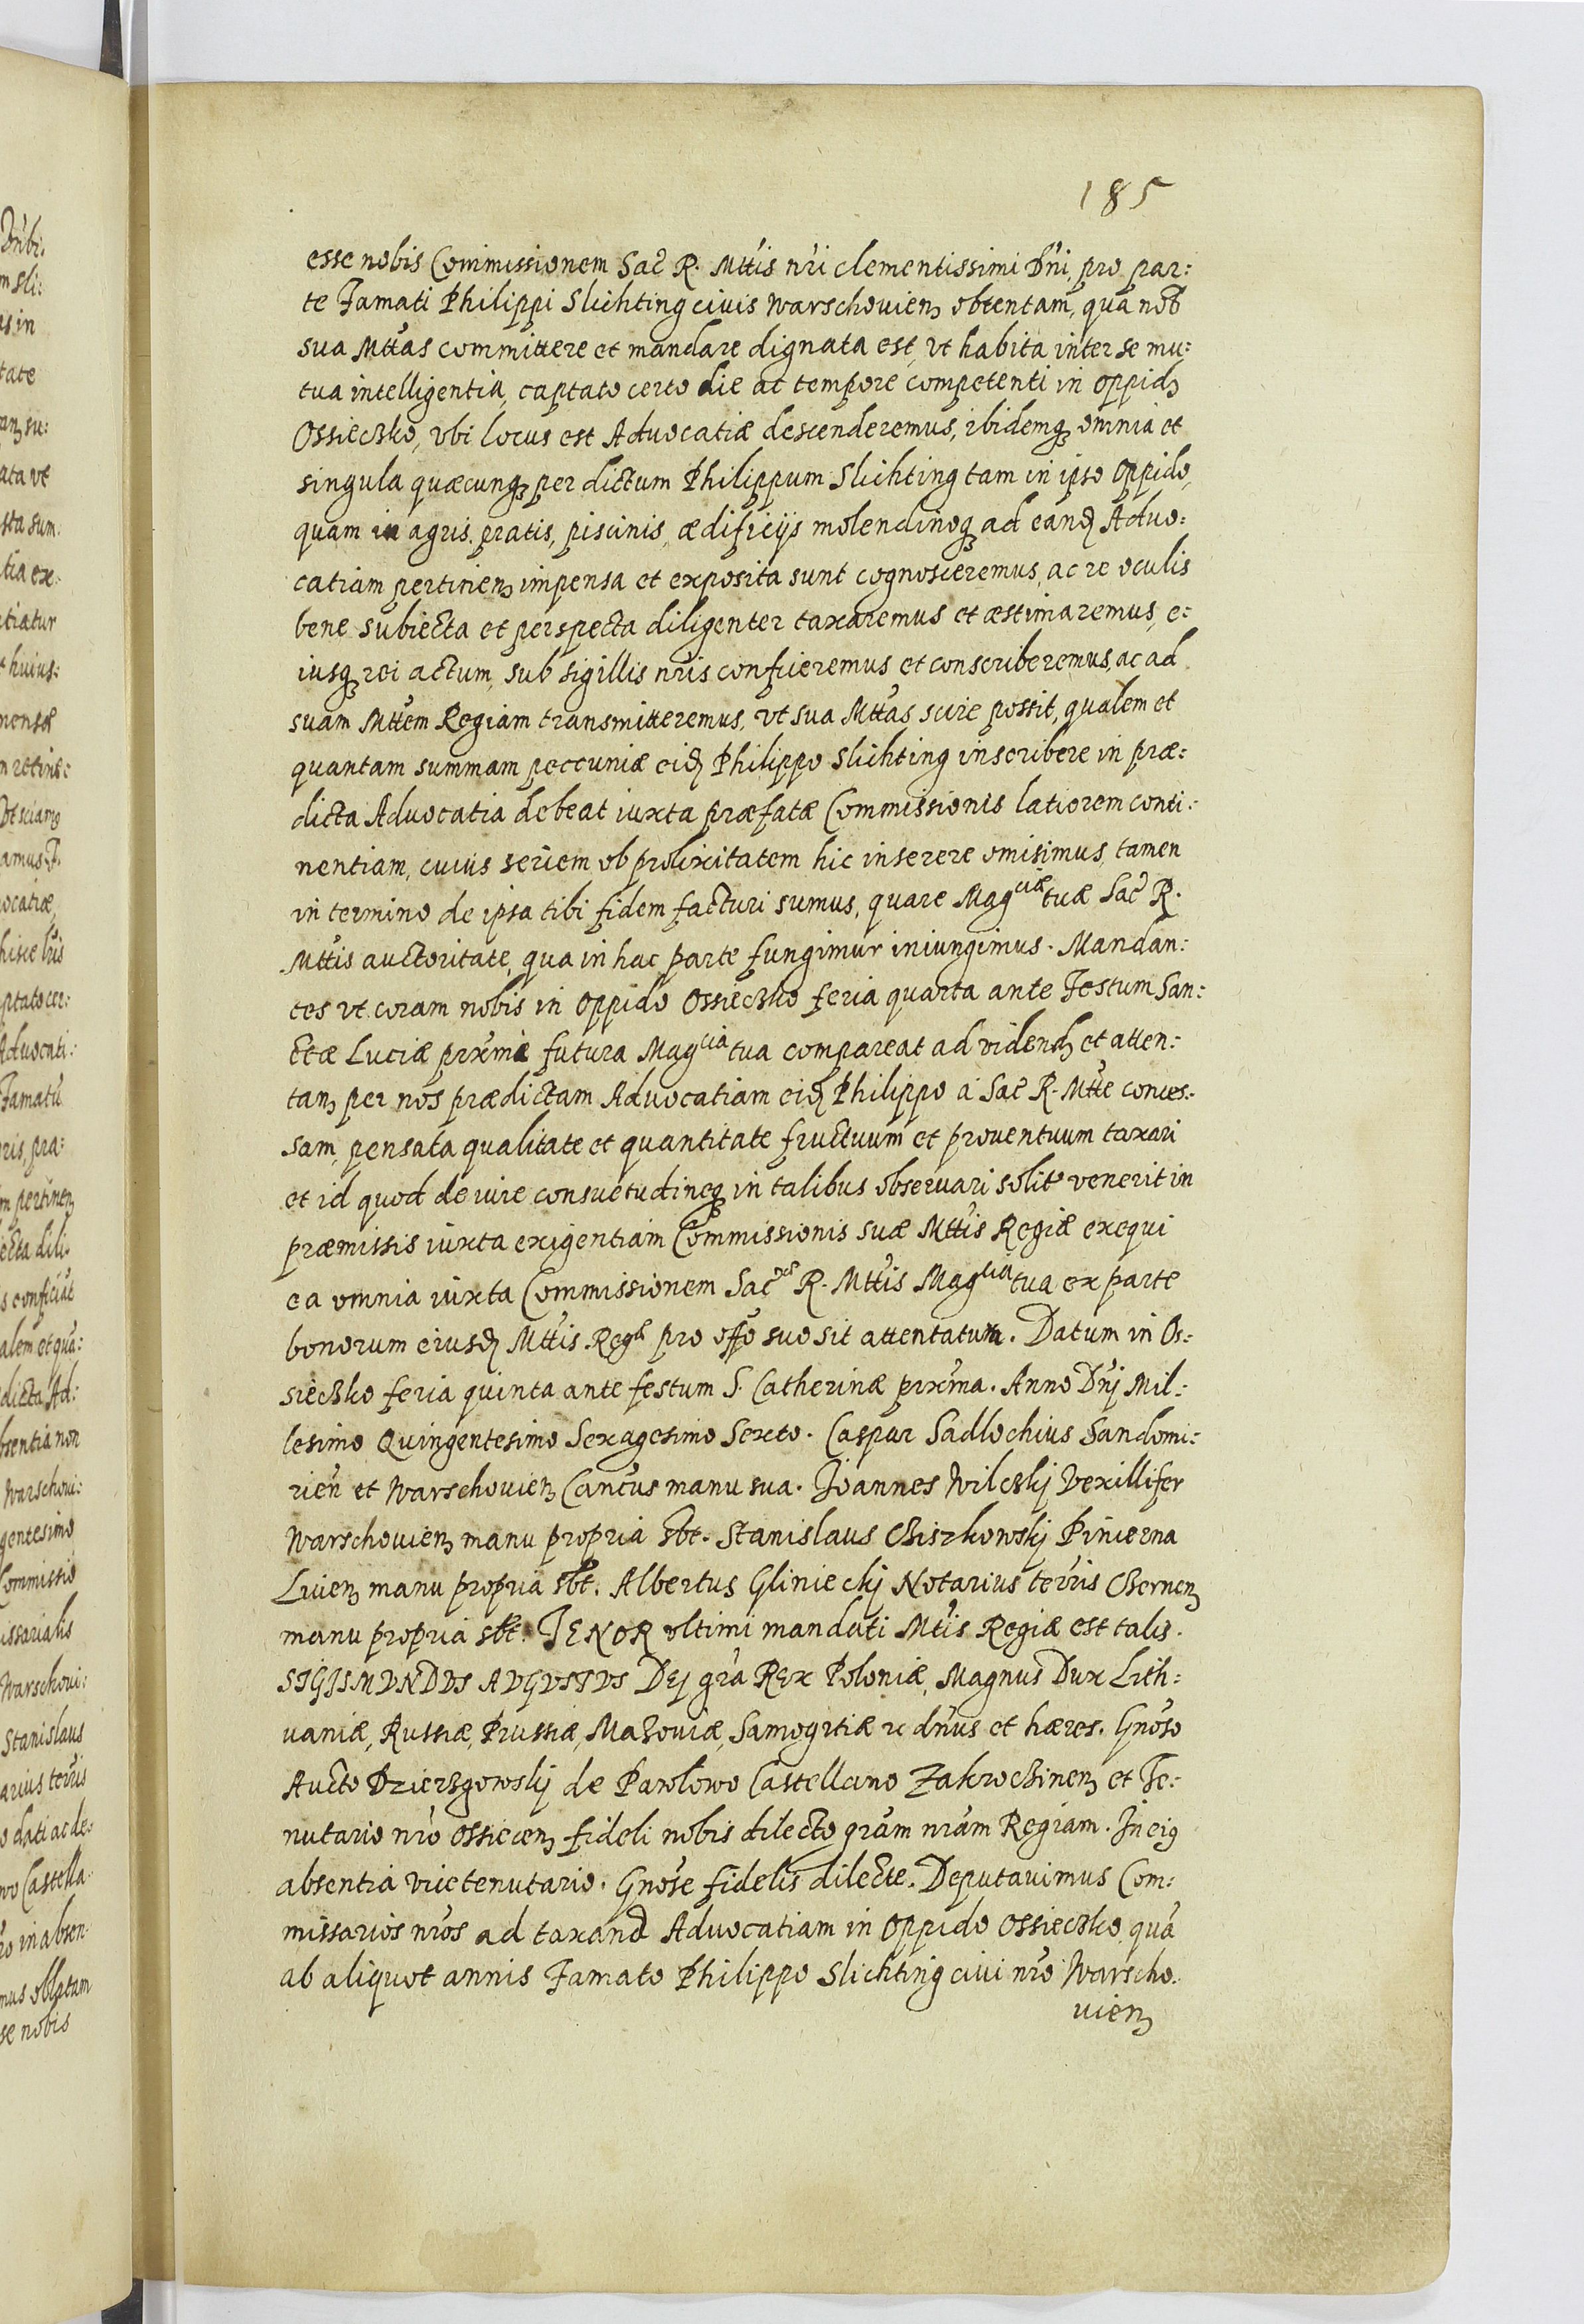 185
esse nobis Commissionem Sac̃ R. Mttis nr̃i clementissimi Dñi, pro par:
te Famati Philippi Slichting civis Warschovienꝫ obtentam, qua nob̃
sua Mttas committere et mandare dignata est, vt habita inter se mu:
tua intelligentia, captato certo die ac tempore competenti in oppidꝫ
Ossieczko, vbi locus est Advocatiæ descenderemus, ibidemqꝫ omnia et
singula quæcunqꝫ per dictum Philippum Slichting tam in ipso oppido,
quam in agris, pratis, piscinis, ædificijs molendinoqꝫ ad eandꝫ Aduo:
catiam pertinenꝫ impensa et exposita sunt cognosceremus, ac re oculis
bene subiecta et perspecta diligenter taxaremus et æstimaremus, e:
iusqꝫ rei actum, sub sigillis nr̃is conficeremus et conscriberemus, ac ad
suam Mttem Regiam transmitteremus, vt sua Mttas scire possit, qualem et
quantam summam peccuniæ eidꝫ Philippo Slichting inscribere in præ:
dicta Advocatia debeat iuxta præfatæ Commissionis latiorem conti:
nentiam, cuius seriem ob prolixitatem hic inserere omisimus, tamen
in termino de ipsa tibi fidem facturi sumus, quare Magciæ tuæ Sac̃ R.
Mttis auctoritate, qua in hac parte fungimur iniungimus. Mandan:
tes vt coram nobis in oppido Ossieczko feria quarta ante Festum San:
ctæ Luciæ prx̃ma futura Magcia tua compareat ad videndꝫ et atten:
tanꝫ per nos prædictam Advocatiam eidꝫ Philippo a Sac̃ R. Mtte conces:
sam, pensata qualitate et quantitate fructuum et proventuum taxari
et id quod de iure consuetudineqꝫ in talibus obseruari solito venerit in
præmissis iuxta exigentiam Commissionis suæ Mttis Regiæ exequi
ea omnia iuxta Commissionem Sacræ R. Mttis Magcia tua ex parte
bonorum eiusdꝫ Mttis Regæ pro offo suo sit attentatum. Datum in Os:
sieczko feria quinta ante festum S. Catherinæ prx̃ma. Anno Dñj Mil:
lesimo Quingentesimo Sexagesimo Sexto. Caspar Sadlochius Sandomi:
rien̄ et Warschovienꝫ Canc̃us manu sua. Joannes Wilczkj Vexillifer
Warschovienꝫ manu propria sbt. Stanislaus Cziszkowskj Pincerna
Livenꝫ manu propria sbt. Albertus Glinieckj Notarius terr̃is Czernenꝫ
manu propria sbt. TENOR vltimi mandati Mtis Regiæ est talis.
SIGISMVNDVS AVGVSTVS Dej gr̃a Rex Poloniæ, Magnus Dux Lith:
uaniæ, Russiæ, Prussiæ, Mazoviæ, Samogitiæ ꝛc dñus et hæres. Gnõso
Aucto Dzierzgowskj de Pawłowo Castellano Zakroczinenꝫ et Te:
nutario nr̃o Ossiecenꝫ fideli nobis dilecto gr̃am nr̃am Regiam. In eiꝰ
absentia vicetenutario. Gnõse fidelis dilecte. Deputavimus Com:
missarios nr̃os ad taxand Advocatiam in oppido Ossieczko, quã
ab aliquot annis Famato Philippo Slichting ciui nr̃o Warscho:
uienꝫ